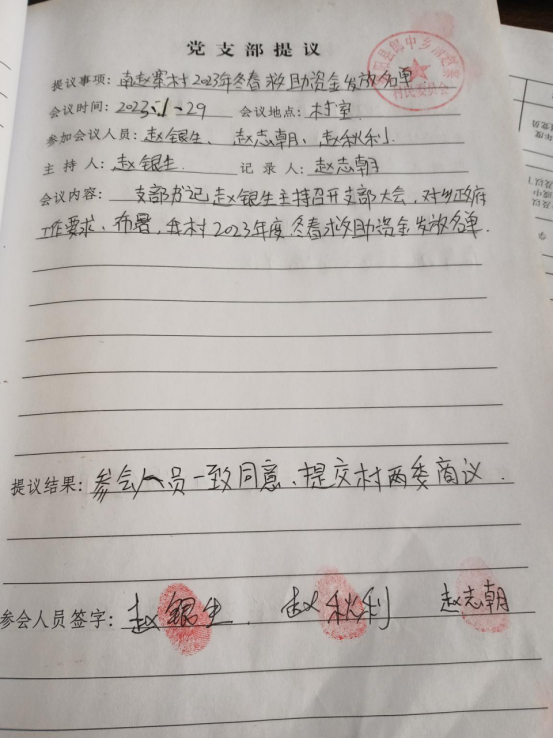 党支部提议
提议事项：南赵寨村2023年冬春救助资金发放名单
会议时间：2023.1-29 会议地点：村室
参加会议人员：赵银生、赵志朝、赵秋利
主持人：赵银生 记录人：赵志朝
会议内容：支部书记赵银生主持召开支部大会，对乡政府
工作要求、布署，我村2023年度冬春救助资金发放名单．
提议结果：参会人员一致同意、提交村两委商议．
参会人员签字：赵银生．赵秋利 赵志朝
村民委员会